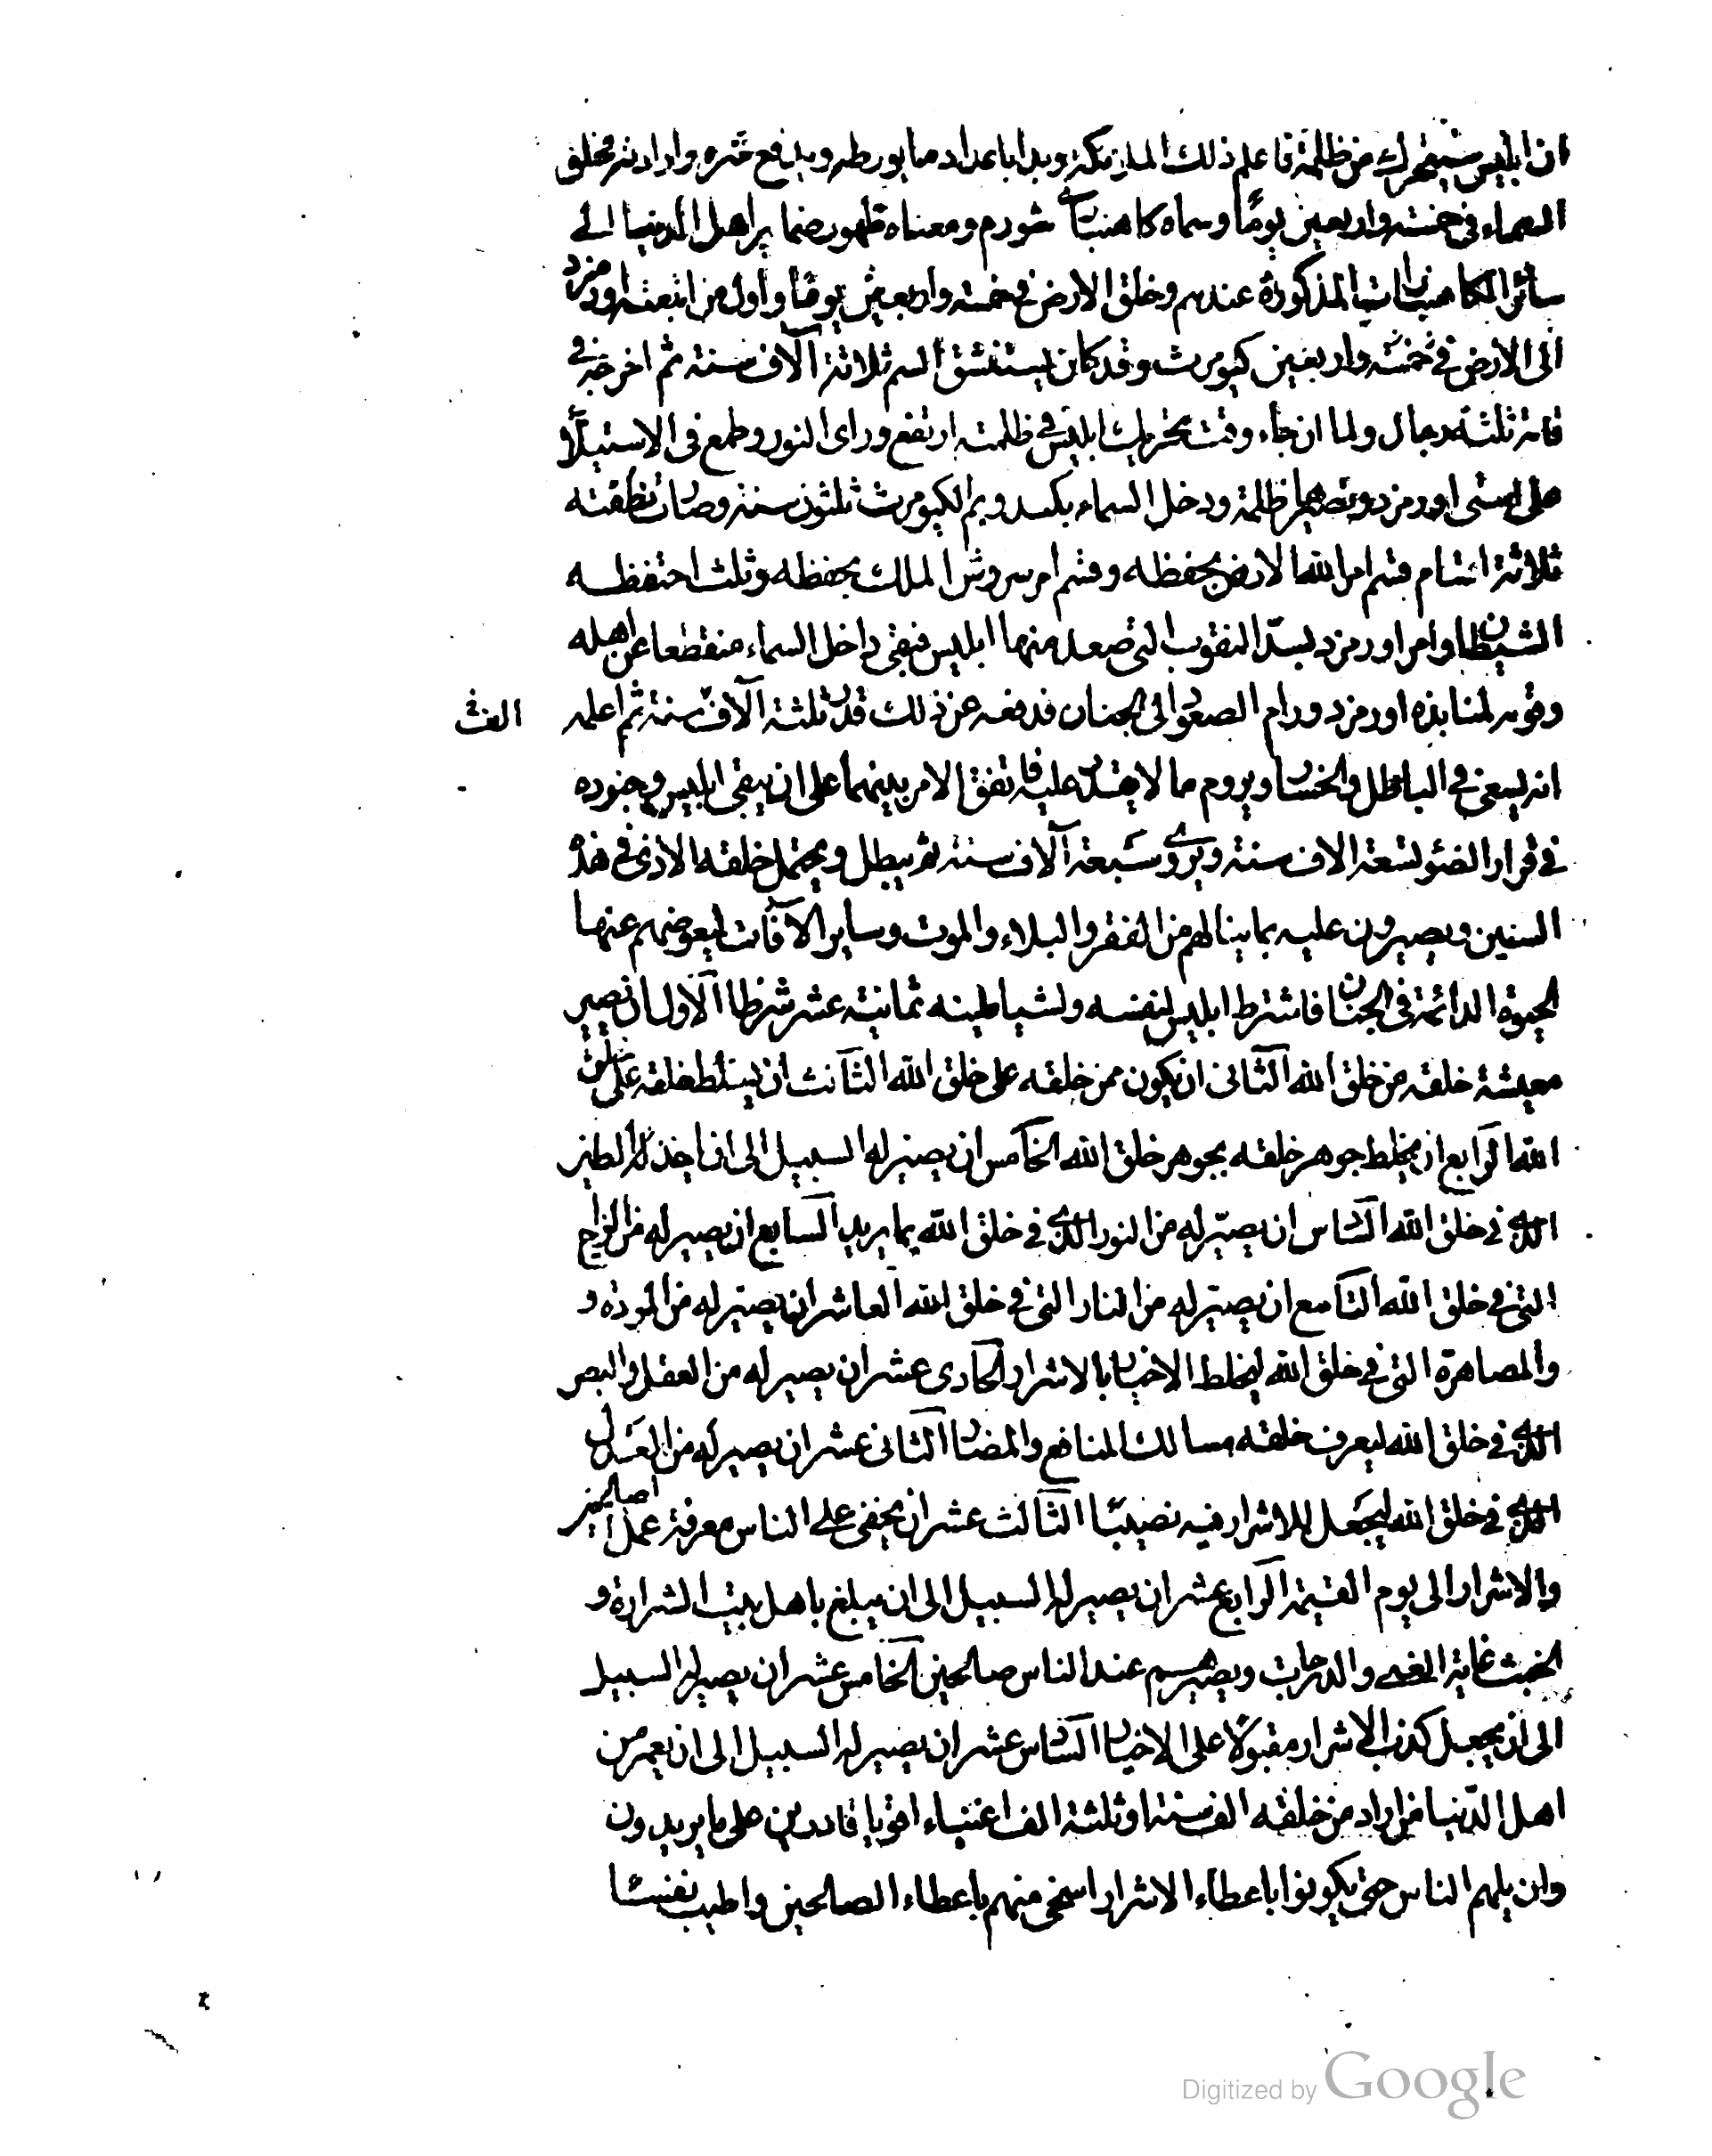 ان ابليس سيتحرك من ظلمة فاعلم ذلك الملائكة وبدا باعداد ما يورطه ويدفع شره وارادته فخلق
السماء في خمسة واربعين يومًا وسماه كاهنبار شورم ومعناه ظهور ضما براهل الدنيا الى
سائر الكاهنبارات المذكورة عندهم وخلق الارض في خمسة واربعين يومًا واول من ابتعثه اورمزد
الى الارض في خمسة واربعين كيومرث وقد كان يستنشق النسم ثلاثة آلاف سنة ثم اخرجه في
قامة ثلثة رجال ولما ان جاء وقت تحريك ابليس في ظلمته ارتفع وراى النور وطمع في الاستيلآ
على اورمزد وتصييرها ظلمة ودخل السماء يكسد ويم الكيومرث ثلثون سنة وصارت نطفته
ثلاثة اقسام قسم امر الله الارض بحفظه وقسم امر سروش الملك بحفظه وثلث احتفظه
الشيطان وامر اورمزد بسدّ النقوب التي صعد منها ابليس فبقي داخل السماء منقطعا عن اهله
وقوته لمنابذة اورمزد ورام الصعود الى الجنان فدفعه عن ذلك قدر ثلثة آلاف سنة ثم اعلمه
انه يسعى في الباطل والخسار ويروم ما لا يقدر عليه فاتفق الامر بينهما على ان يبقى ابليس وجنوده
في قرار الضوء تسعة الاف سنة ويروى سبعة آلاف سنة ثم يبطل ويحتمل خلقه الاذى في هذه
السنين ويصبرون عليه بما ينالهم من الفقر والبلاء والموت وساير الآفات ليعوضهم عنها
الحيوة الدائمة في الجنان فاشترط ابليس لنفسه ولشياطينه ثمانية عشر شرطا الاول ان تصير
معيشة خلقه من خلق الله الثاني ان يكون ممر خلقه على خلق الله الثالث ان يسلط خلقه على خلق
الله الرابع ان يخلط جوهر خلقه بجوهر خلق الله الخامس ان يصير له السبيل الى ان ياخذ الطين
الذي في خلق الله السادس ان يصيّر له من النور الذي في خلق الله بما يريد السابع ان يصير له من الرياح
التي في خلق الله التاسع ان يصيّر له من النار التي في خلق الله العاشر ان يصير له من المودة و
والمصاهرة التي في خلق الله ليخلط الاخيار بالاشرار الحادي عشر ان يصير له من العقل والبصر
الذي في خلق الله ليعرف خلقه مسالك المنافع والمضار الثاني عشر ان يصير له من العدل
الذي في خلق الله ليجعل للاشرار فيه نصيبًا الثالث عشر ان يخفي على الناس معرفة عمل الصالحين
والاشرار الى يوم القيمة الرابع عشر ان يصير له السبيل الى ان يبلغ باهل بيت الشرارة و
الخبث غاية الغنى والدرجات ويصيرهم عند الناس صالحين الخامس عشر ان يصير له السبيل
الى ان يجعل كذب الاشرار مقبولا على الاخيار السادس عشر ان يصير له السبيل الى ان يعمر من
اهل الدّنيا من اراد من خلقه الف سنة او ثلثة الف اغنياء اقويا قادرين على ما يريدون
وان يلهم الناس حتى يكونوا باعطاء الاشرار اسخى منهم باعطاء الصالحين واطيب نفسًا
Digitized by Google